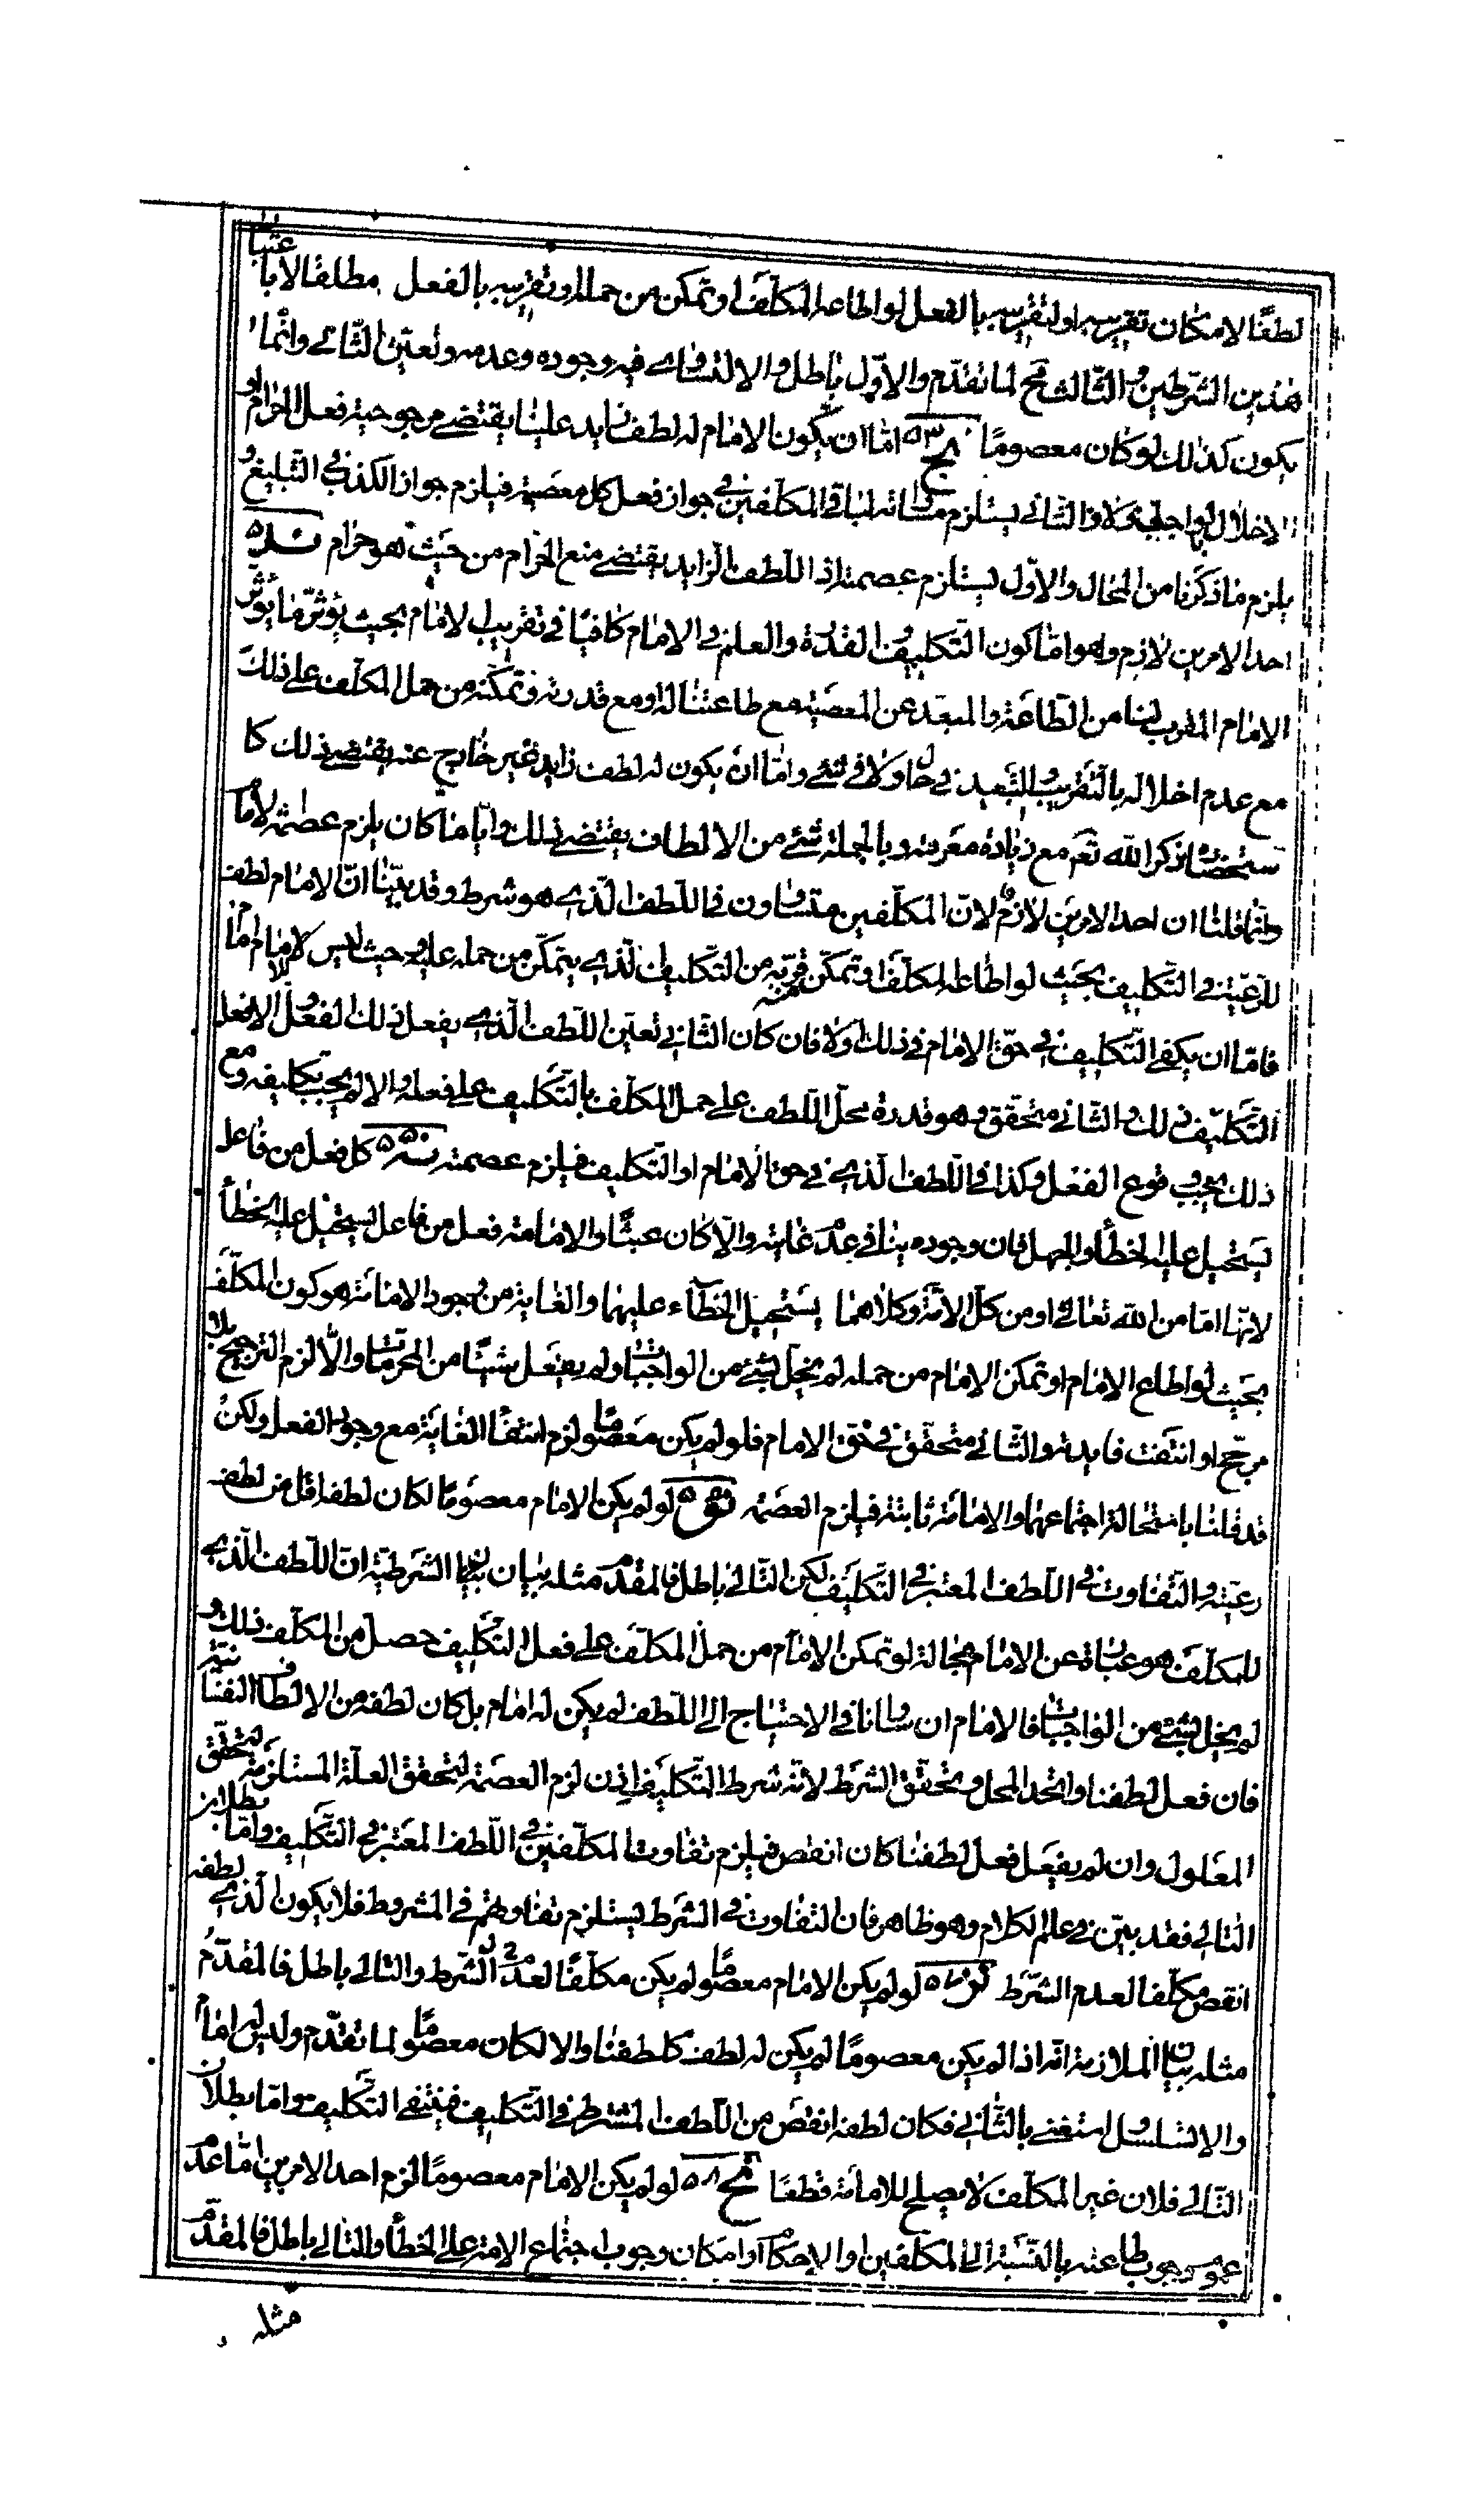 لطفًا لامكان تقريبه او لتقريبه بالفعل لو اطاعه المكلف او تمكن من حمله او تقريبه بالفعل مطلقا لا باعتبار
هذين الشرطين والثالث مح لما تقدم والاول باطل والا لتساوى فيه وجوده وعدمه وتعين الثانى وانما
يكون كذلك لو كان معصومًا نح ٥٣ اما ان يكون الامام له لطف زايد علينا يقتضى مرجوحية فعل الحرام او
الاخلال بالواجب اولا والثانى يستلزم مساواته لباقى المكلفين فى جواز فعل كل معصية فيلزم جواز الكذب فى التبليغ و
يلزم ما ذكرنا من المحال والاول يستلزم عصمته اذ اللطف الزايد يقتضى منع الحرام من حيث هو حرام ند ٥٤
احد الامرين لازم وهو اما كون التكليف والقدرة والعلم فى الامام كافيًا فى تقريب الامام بحيث يؤثر ما يؤثر
الامام المقرب لنا من الطاعة والمبعد عن المعصية مع طاعتنا له او مع قدرته وتمكنه من حمل المكلف على ذلك
مع عدم اخلاله بالتقريب والتبعيد فى حال ولا فى شئ واما ان يكون له لطف زايد غير خارج عنه يقتضى ذلك كا
ستحضار ذكر الله تعم مع زيادة معرفته وبالجملة شئ من الالطاف يقتضى ذلك وايا ما كان يلزم عصمة الامام
وانما قلنا ان احد الامرين لازم لان المكلفين متساوون فى اللطف الذى هو شرط وقد بينا ان الامام لطف
للرعية فى التكليف بحيث لو اطاعه المكلف او تمكن قربه من التكليف الذى يتمكن من حمله عليه وحيث ليس للامام امام
فاما ان يكفى التكليف فى حق الامام فى ذلك اولا فان كان الثانى تعين اللطف الذى يفعل ذلك الفعل والا فعل
التكليف ذلك والثانى متحقق وهو قدرة محل اللطف على حمل المكلف بالتكليف على فعله والا لم يجب تكليفه ومع
ذلك يجب وقوع الفعل وكذا فى اللطف الذى فى حق الامام او التكليف فيلزم عصمته نه ٥٥ كل فعل من فاعل
يستحيل عليه الخطأ والجهل فان وجوده ينافى عدم غايته والا كان عبثًا والامامة فعل من فاعل يستحيل عليه الخطأ
لانها اما من الله تعالى او من كل الامة وكلاهما يستحيل الخطاء عليهما والغاية من وجود الامامة هو كون المكلف
بحيث لو اطاع الامام او تمكن الامام من حمله لم يخل بشئ من الواجبات ولم يفعل شيئًا من المحرمات والا لزم الترجيح بلا
مرجح او انتفت فايدته والثانى متحقق فى حق الامام فلو لم يكن معصومًا لزم انتفأ الغاية مع وجود الفعل ولكن
قد قلنا باستحالة اجتماعهما والامامة ثابتة فيلزم العصمة نو ٥٦ لو لم يكن الامام معصومًا لكان لطفه اقل من لطف
رعيته والتفاوت فى اللطف المعتبر فى التكليف لكن التالى باطل فالمقدم مثله بيان الشرطية ان اللطف الذى
للمكلف هو عبارة عن الامام بحالة لو تمكن الامام من حمل المكلف على فعل التكليف حصل من المكلف ذلك و
لم يخل بشئ من الواجبات فالامام ان ساوانا فى الاحتياج الى اللطف لم يكن له امام بل كان لطفه من الالطاف
فان فعل لطفنا واتحد المحل وتحقق الشرط لانه شرط التكليف اذن لزم العصمة لتحقق العلة المستلزمة لتحقق
المعلول وان لم يفعل فعل لطفنا كان انقص فيلزم تفاوت المكلفين فى اللطف المعتبر فى التكليف واما بطلان
التالى فقد بين فى علم الكلام وهو ظاهر فان التفاوت فى الشرط يستلزم تفاوتهم فى المشروط فلا يكون الذى لطفه
انقص مكلفا لعدم الشرط نز ٥٧ لو لم يكن الامام معصومًا لم يكن مكلفًا لعدم الشرط والتالى باطل فالمقدم
مثله بيان الملازمة انه اذا لم يكن معصومًا لم يكن له لطف كلطفنا والا لكان معصومًا لما تقدم وليس له امام
والا لتسلسل او استغنى بالثانى فكان لطفه انقص من اللطف المشترط فى التكليف فينتفى التكليف واما بطلان
التالى فلان غير المكلف لا يصلح للامامة قطعًا نح ٥٨ لو لم يكن الامام معصومًا لزم احد الامرين اما عدم
عموم وجوب طاعته بالنسبة الى المكلفين او الاحكام او امكان وجوب اجتماع الامة على الخطأ والتالى باطل فالمقدم
مثله